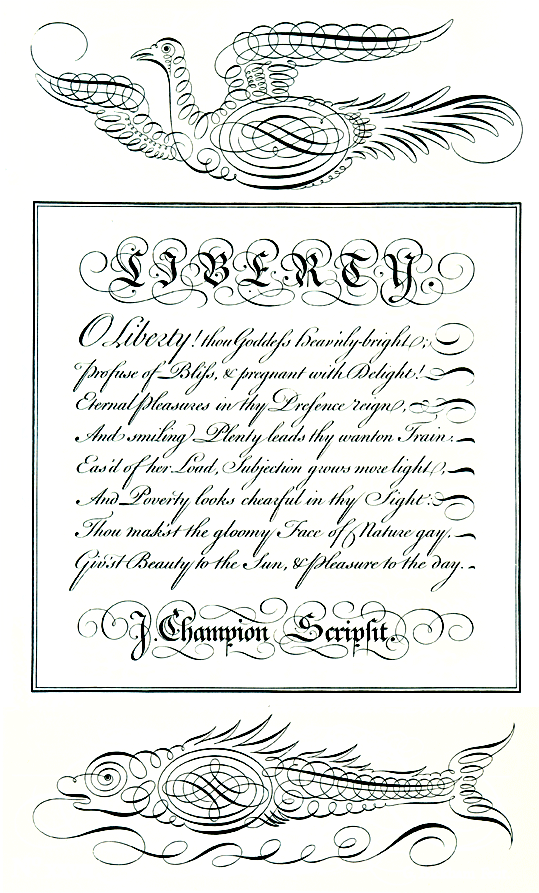 LIBERTY.
O Liberty! thou Goddess heavenly-bright,
Profuse of Bliss, & pregnant with Delight!
Eternal pleasures in thy Presence reign,
And smiling Plenty leads thy wanton Train.
Eas'd of her Load, Subjection grows more light,
And Poverty looks chearful in thy Sight.
Thou mak'st the gloomy Face of Nature gay,
Giv'st Beauty to the Sun, & pleasure to the day.
J. Champion Scripsit.